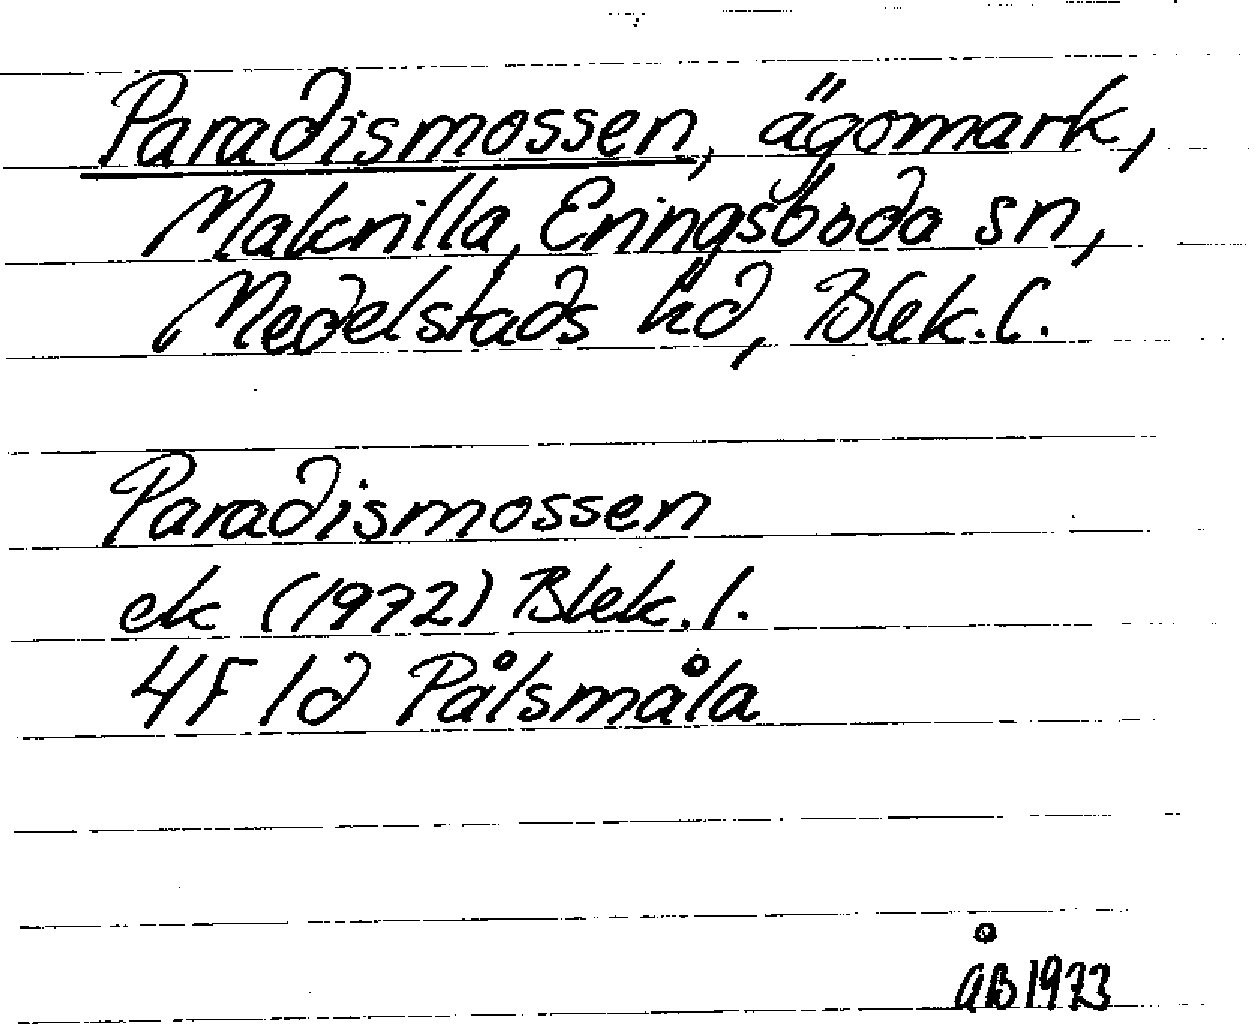 Paradismossen, ägomark,
Makrilla, Eringsboda sn,
Medelstads hd, Blek. l.
Paradismossen
ek (1972) Blek. l.
4F 1d Pålsmåla
åB 1973